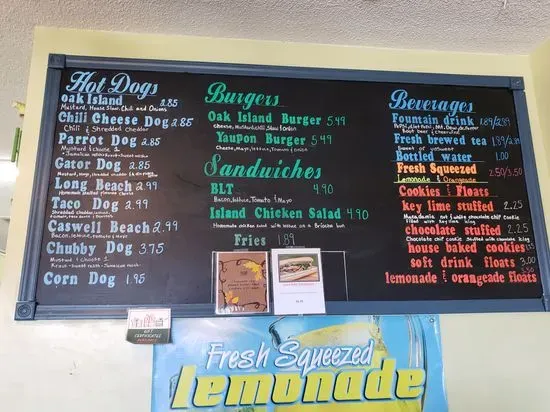 Hot Dogs
Oak Island 2.85
Mustard, House Slaw, Chili and Onions
Chili Cheese Dog 2.85
Chili & Shredded Cheddar
Parrot Dog 2.85
Mustard &
Gator Dog 2.85
Mayo, shredded cheddar &
Long Beach 2.99
Homemade
Taco Dog 2.99
Shredded cheddar,
Caswell Beach 2.99
Bacon, lettuce, tomato, & Mayo
Chubby Dog 3.75
Mustard &
Corn Dog 1.95
Burgers
Oak Island Burger 5.49
Cheese, Mustard, chili, Slaw & onion
Yaupon Burger 5.49
Cheese, Mayo, lettuce, Tomato & onion
Sandwiches
BLT 4.90
Bacon, lettuce, Tomato & Mayo
Island Chicken Salad 4.90
Homemade chicken salad with lettuce on a Brioche bun
Fries 1.89
Beverages
Fountain drink 1.89/2.39
Pepsi, diet Pepsi, Mt. Dew, Dr. Pepper
Root Beer & Cheerwine
Fresh brewed tea 1.89/2.39
Sweet or unsweet
Bottled water 1.00
Fresh Squeezed 2.50/3.50
Lemonade & Orangeade
Cookies & Floats
key lime stuffed 2.25
Macadamia nut & white chocolate chip cookie
filled with key lime icing
chocolate stuffed 2.25
Chocolate chip cookie stuffed with chocolate icing
house baked cookies
soft drink floats 3.00
lemonade & orangeade floats
GIFT
CERTIFICATES
Fresh Squeezed
Lemonade